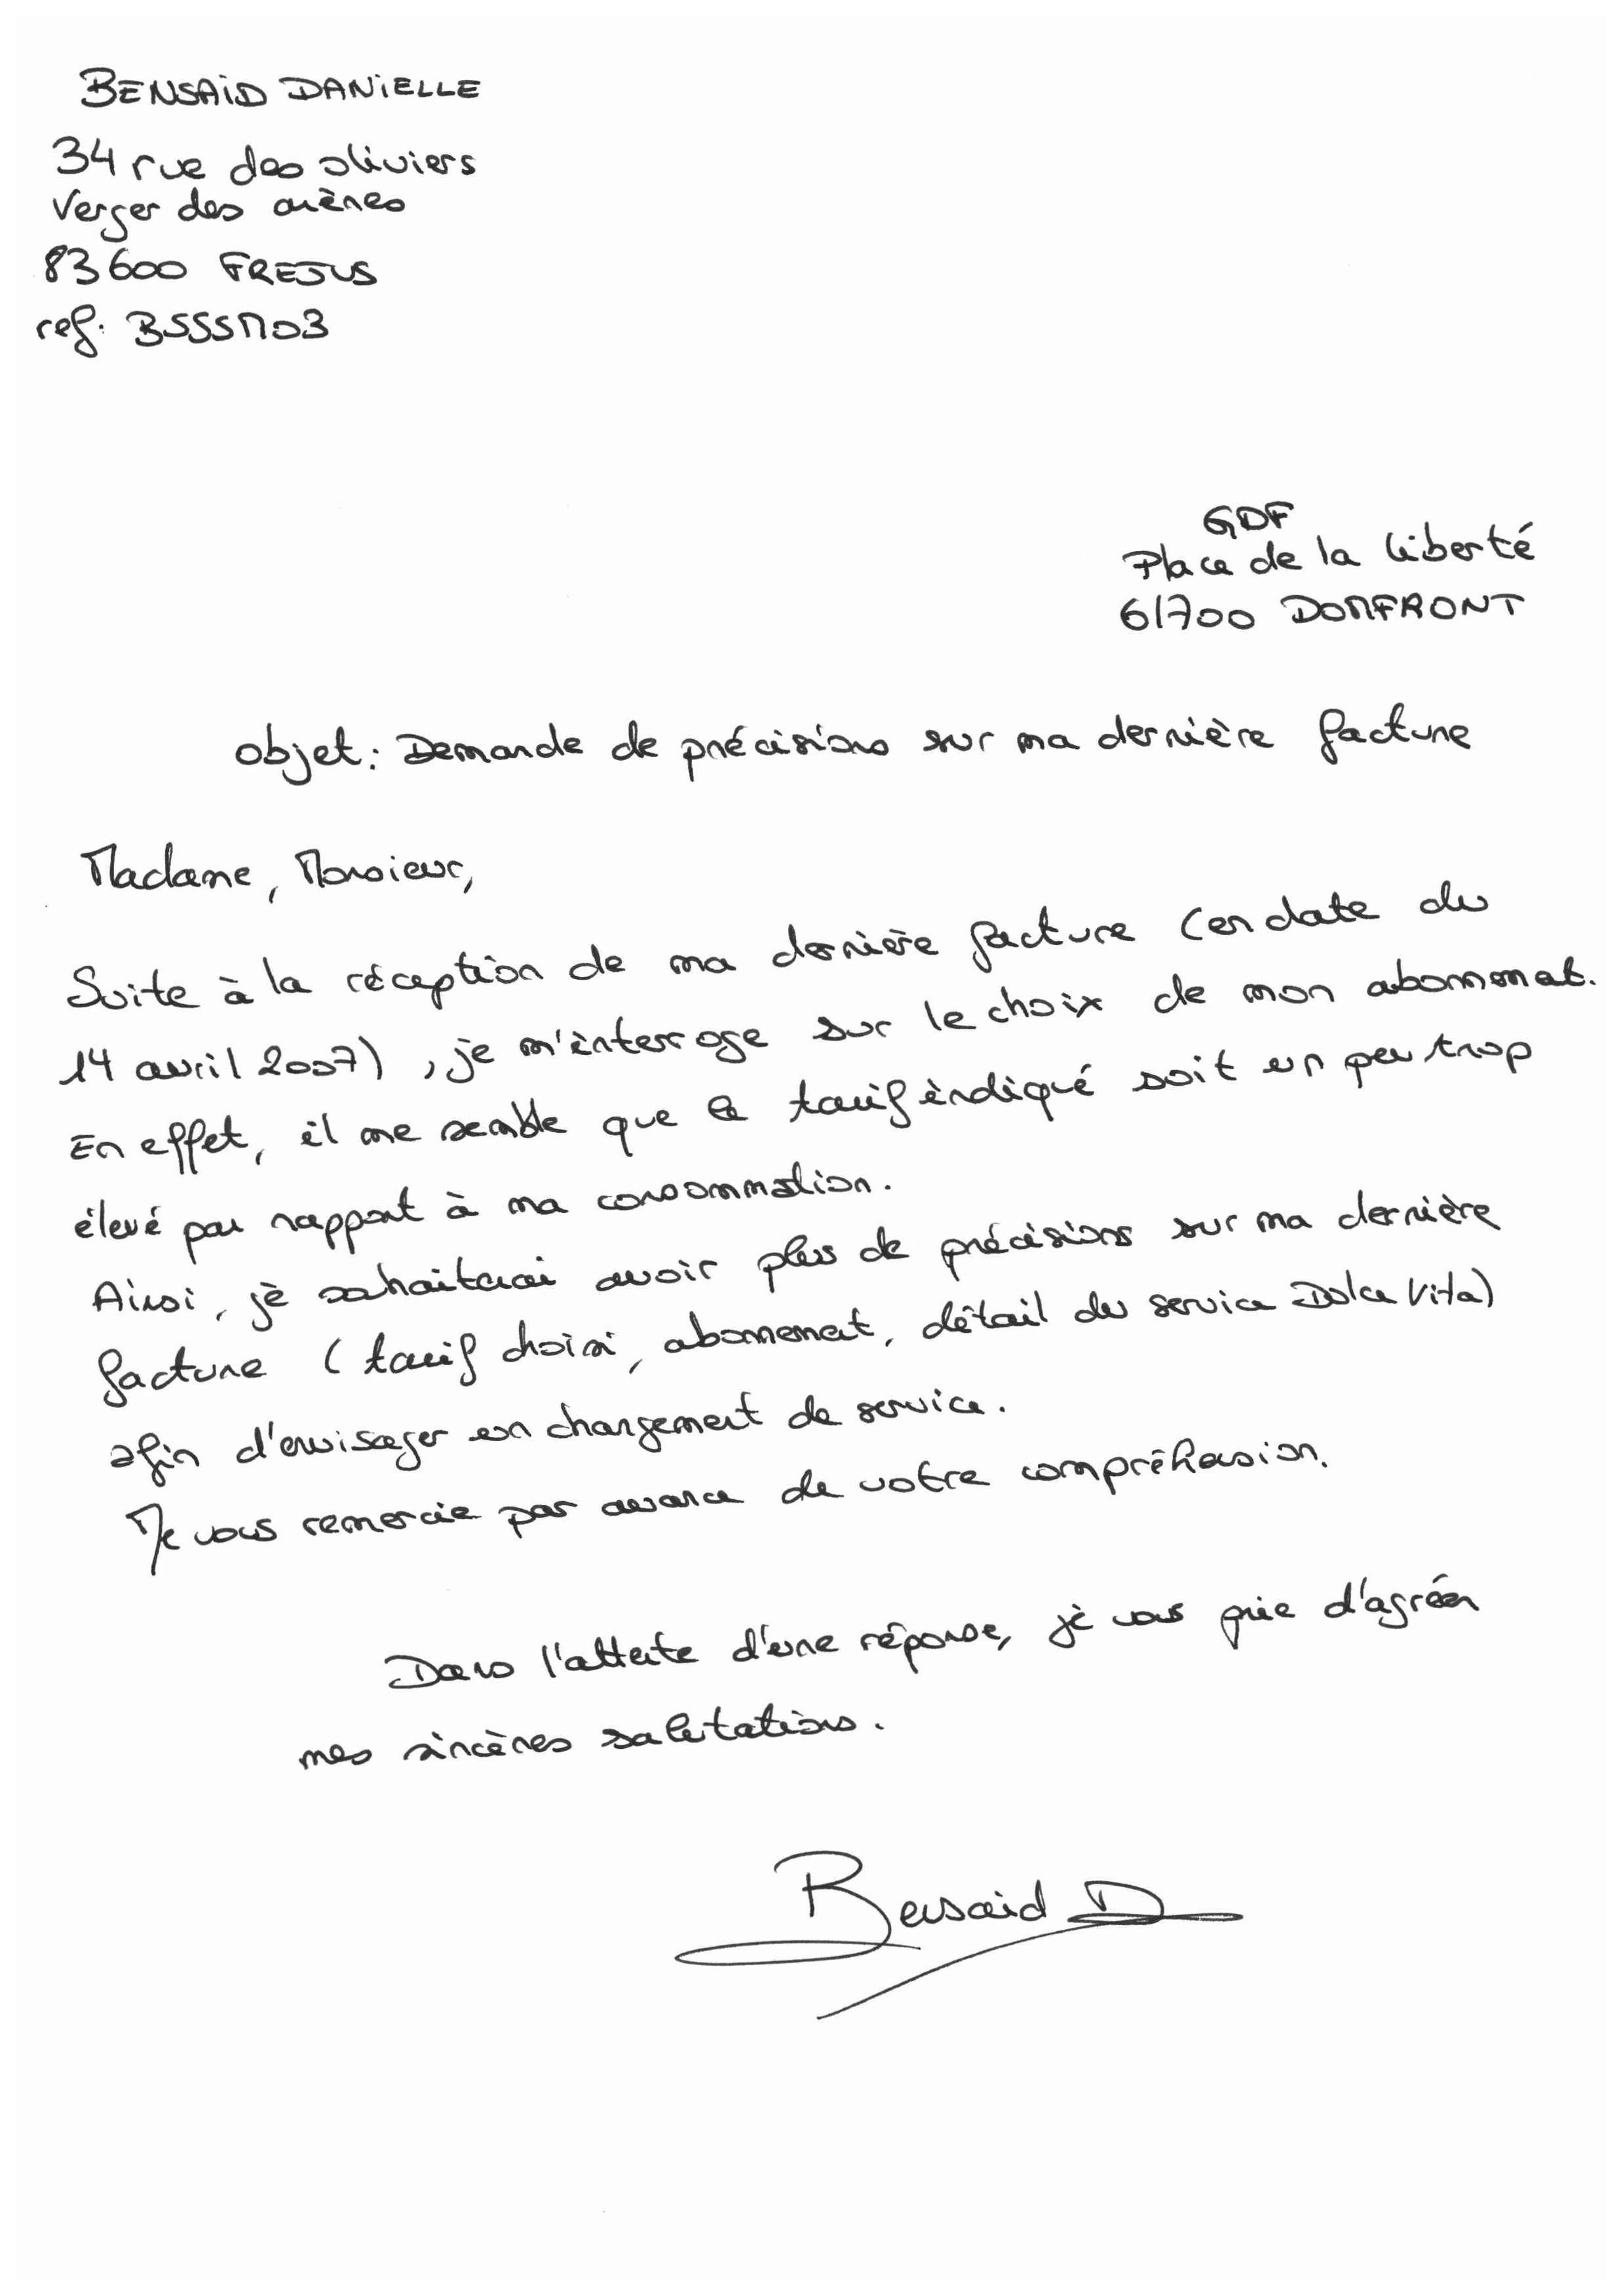 BENSAID DANIELLE
34 rue des oliviers
Verger des arènes
83600 FREJUS
ref: BSSSM03
GDF
Place de la liberté
61700 DOMFRONT
Objet: Demande de précisions sur ma dernière facture
Madame, Monsieur,
Suite à la réception de ma dernière facture (en date du
14 avril 2007), je m'interroge sur le choix de mon abonnement.
En effet, il me semble que le tarif indiqué soit un peu trop
élevé par rapport à ma consommation.
Ainsi, je souhaiterai avoir plus de précisions sur ma dernière
facture (tarif choisi, abonnement, détail du service Dolce Vita)
afin d'envisager un changement de service.
Je vous remercie par avance de votre compréhension.
Dans l'attente d'une réponse, je vous prie d'agréer
mes sincères salutations.
Bensaid D